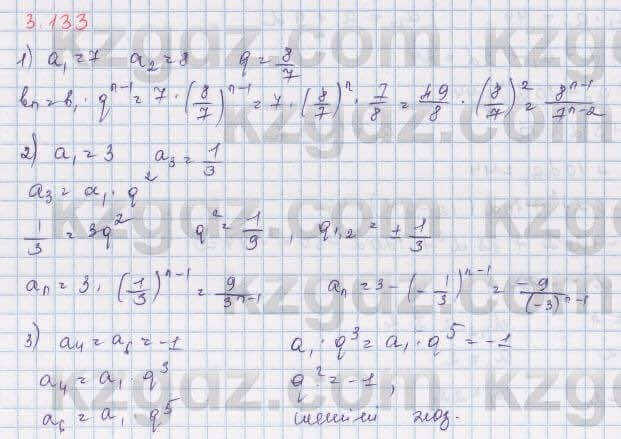 3.133
1) a₁=7 a₂=8 q=8/7
bₙ=b₁·qⁿ⁻¹=7·(8/7)ⁿ⁻¹=7·(8/7)ⁿ·7/8=49/8·(8/7)²=8ⁿ⁻¹/7ⁿ⁻²
2) a₁=3 a₃=1/3
a₃=a₁·q²
1/3=3q² q²=1/9, q₁,₂=±1/3
aₙ=3·(1/3)ⁿ⁻¹=9/3ⁿ⁻¹ aₙ=3-(-1/3)ⁿ⁻¹=-9/(-3)ⁿ⁻¹
3) a₄=a₆=-1 a₁·q³=a₁·q⁵=-1
a₄=a₁·q³ q²=-1,
a₆=a₁ q⁵ шешімі жоқ.
kzgdz.com